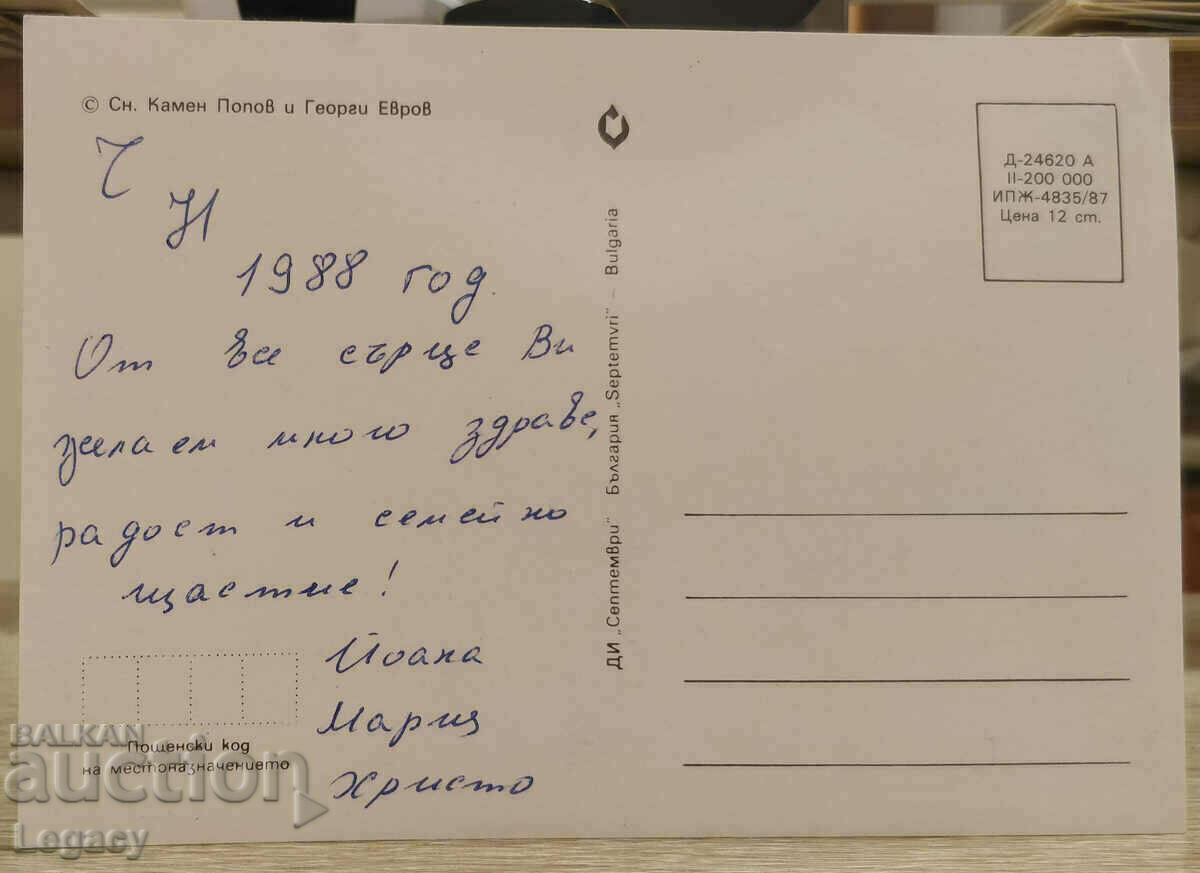 © Сн. Камен Попов и Георги Евров
Ч
Н
1988 год.
От все сърце Ви
желаем много здраве,
радост и семейно
щастие!
Йоана
Мария
Христо
Пощенски код
на местоназначението
ДИ „Септември" България „Septemvri" – Bulgaria
Д-24620 А
II-200 000
ИПЖ-4835/87
Цена 12 ст.
BALKAN
auction
Legacy